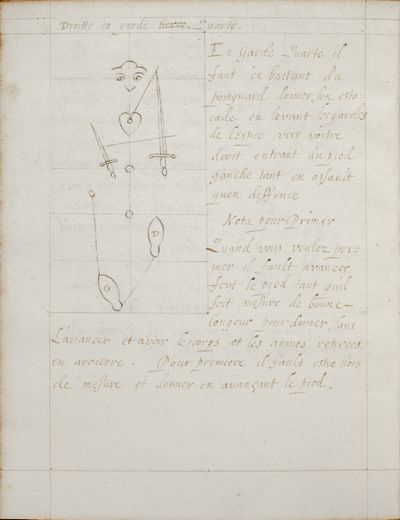 Droitte en garde tierce. Quarte.
En Garde Quarte il
faut en battant du
poingnard donner son esto=
cade en levant les gardes
de lespee vers vostre
droit entrant du pied
gauche tant en assault
quen deffence
Nota pour Primer
Quand vous voulez pri=
mer il fault avancer
fort le pied tant quil
soit mesure de bonne
longeur pour donner sans
Lavancer et avoir le corps et les armes retirees
en arrierre. Pour premiere il fault estre hors
de mesure et donner en avançant le pied.
G
D